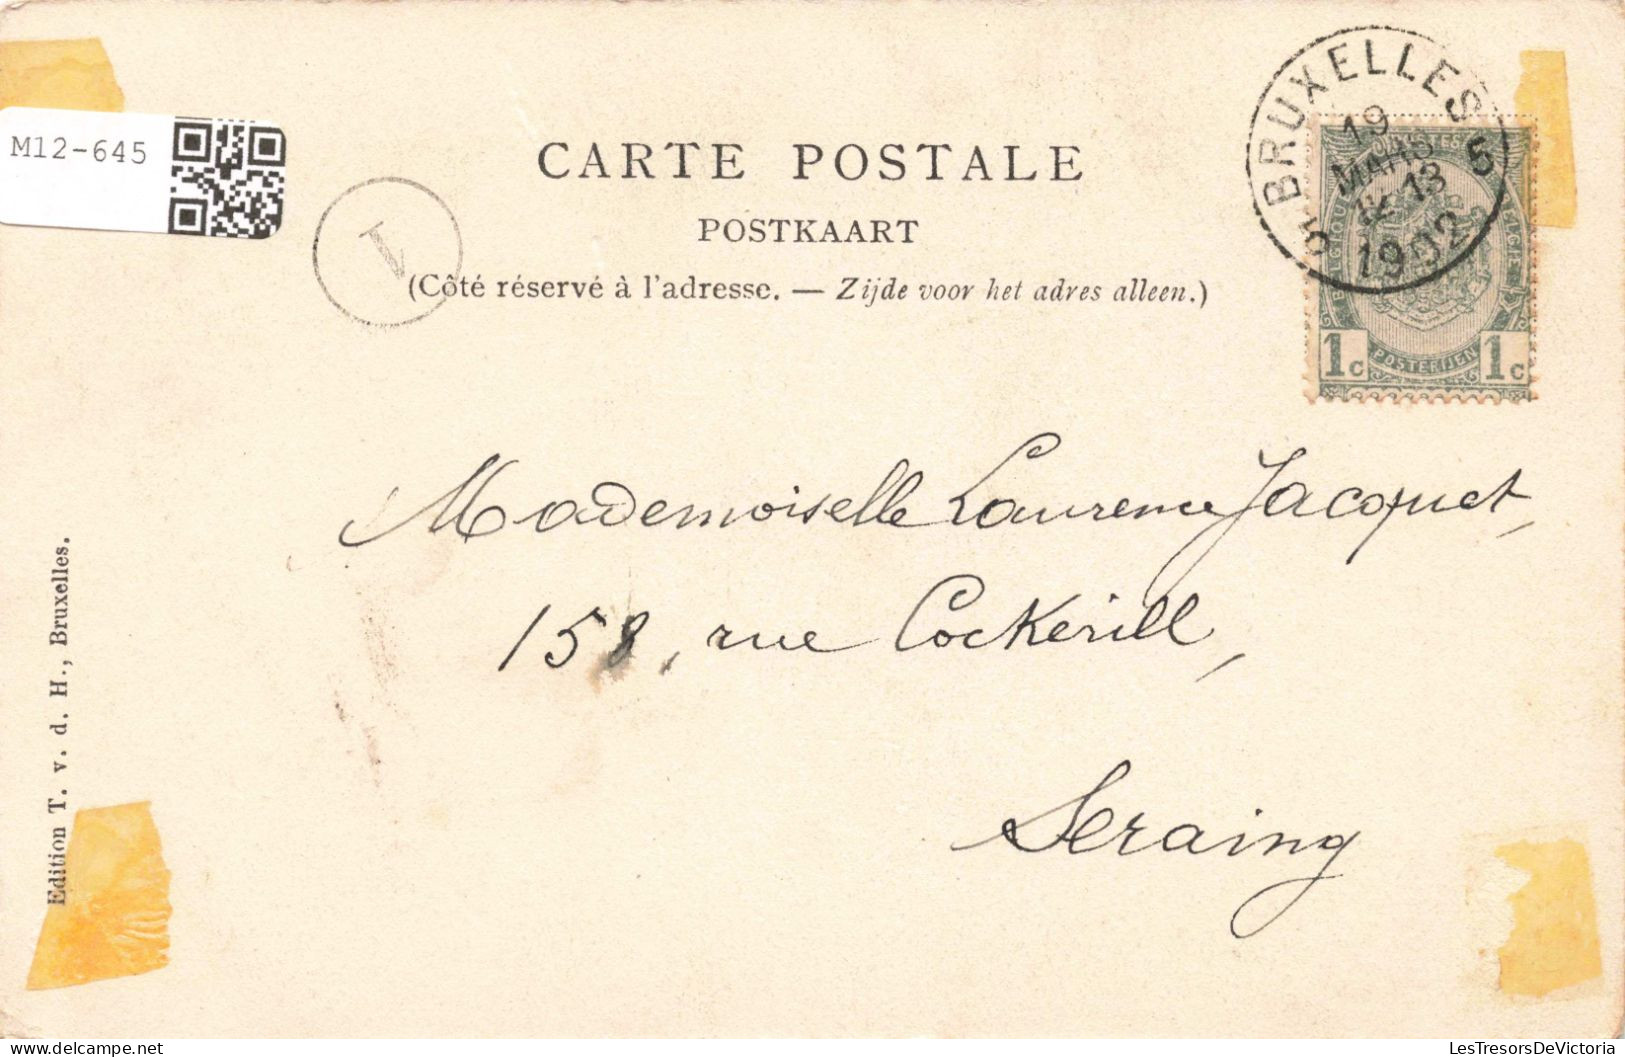 M12-645
CARTE POSTALE
POSTKAART
(Côté réservé à l'adresse. — Zijde voor het adres alleen.)
1
5 BRUXELLES 5
19
MARS
12-13
1902
BELGIE
1c POSTERIJEN 1c
Mademoiselle Laurence Jacquet,
158, rue Cockerill,
Seraing
Edition T. v. d. H., Bruxelles.
LesTresorsDeVictoria
delcampe.net